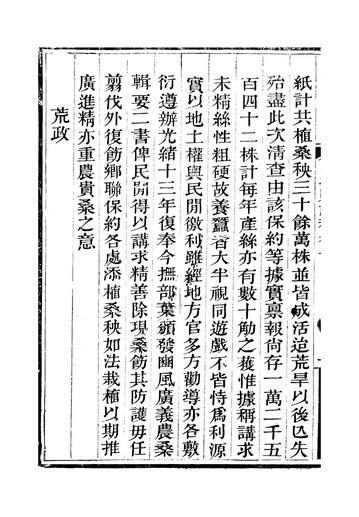 紙計共植桑秧三十餘萬株並皆成活迨荒旱以後亡失
殆盡此次清查由該保約等據實稟報尚存一萬二千五
百四十二株計每年產絲亦有數十觔之獲惟據稱講求
未精絲性粗硬故養蠶者大半視同遊戲不皆恃爲利源
實以地土權與民間徼利雖經地方官多方勸導亦各敷
衍遵辦光緒十三年復奉今撫部葉頒發豳風廣義農桑
輯要二書俾民間得以講求精善除現桑飭其防護毋任
翦伐外復飭鄉聯保約各處添植桑秧如法栽植以期推
廣進精亦重農貴桑之意
荒政